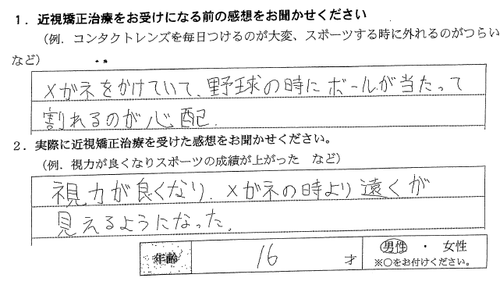 1．近視矯正治療をお受けになる前の感想をお聞かせください
（例．コンタクトレンズを毎日つけるのが大変、スポーツする時に外れるのがつらい
など）
メガネをかけていて、野球の時にボールが当たって
割れるのが心配.
2．実際に近視矯正治療を受けた感想をお聞かせください。
（例．視力が良くなりスポーツの成績が上がった　など）
視力が良くなり、メガネの時より遠くが
見えるようになった。
年齢　16　才　男性　・　女性
※○をお付けください。